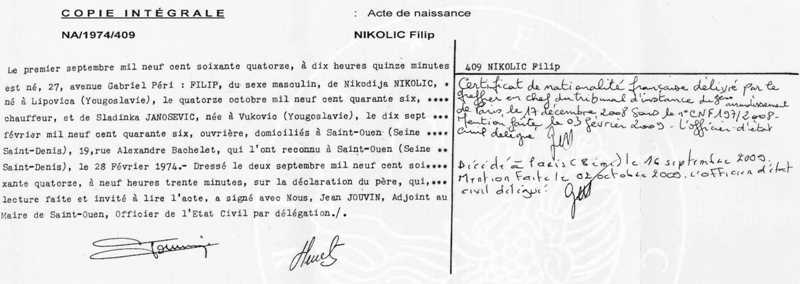 COPIE INTÉGRALE : Acte de naissance
NA/1974/409 NIKOLIC Filip
Le premier septembre mil neuf cent soixante quatorze, à dix heures quinze minutes
est né, 27, avenue Gabriel Péri : FILIP, du sexe masculin, de Nikodija NIKOLIC, •
né à Lipovica (Yougoslavie), le quatorze octobre mil neuf cent quarante six, ••••
chauffeur, et de Sladinka JANOSEVIC, née à Vukovic (Yougoslavie), le dix sept ••••
février mil neuf cent quarante six, ouvrière, domiciliés à Saint-Ouen (Seine ••••
Saint-Denis), 19,rue Alexandre Bachelet, qui l'ont reconnu à Saint-Ouen (Seine ••
Saint-Denis), le 28 Février 1974.- Dressé le deux septembre mil neuf cent soi••••
xante quatorze, à neuf heures trente minutes, sur la déclaration du père, qui,•••
lecture faite et invité à lire l'acte, a signé avec Nous, Jean JOUVIN, Adjoint au
Maire de Saint-Ouen, Officier de l'Etat Civil par délégation./.
409 NIKOLIC Filip
Certificat de nationalité française délivré par le
greffier en chef du tribunal d'instance du arrondissement
de Paris, le 17 décembre 2008 sous le n° CNF 197/2008-
Mention faite, le 03 février 2009 - L'officier d'état
civil délégué
Décédé à Paris (8ème) le 16 septembre 2009.
Mention Faite le 02 octobre 2009. L'officier d'état
civil délégué